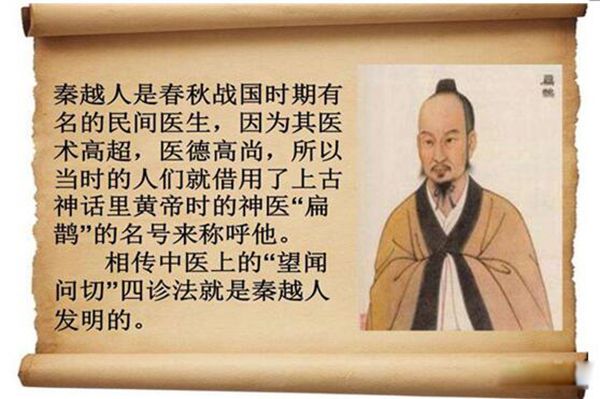 秦越人是春秋战国时期有
名的民间医生，因为其医
术高超，医德高尚，所以
当时的人们就借用了上古
神话里黄帝时的神医“扁
鹊”的名号来称呼他。
相传中医上的“望闻
问切”四诊法就是秦越人
发明的。
扁鹊